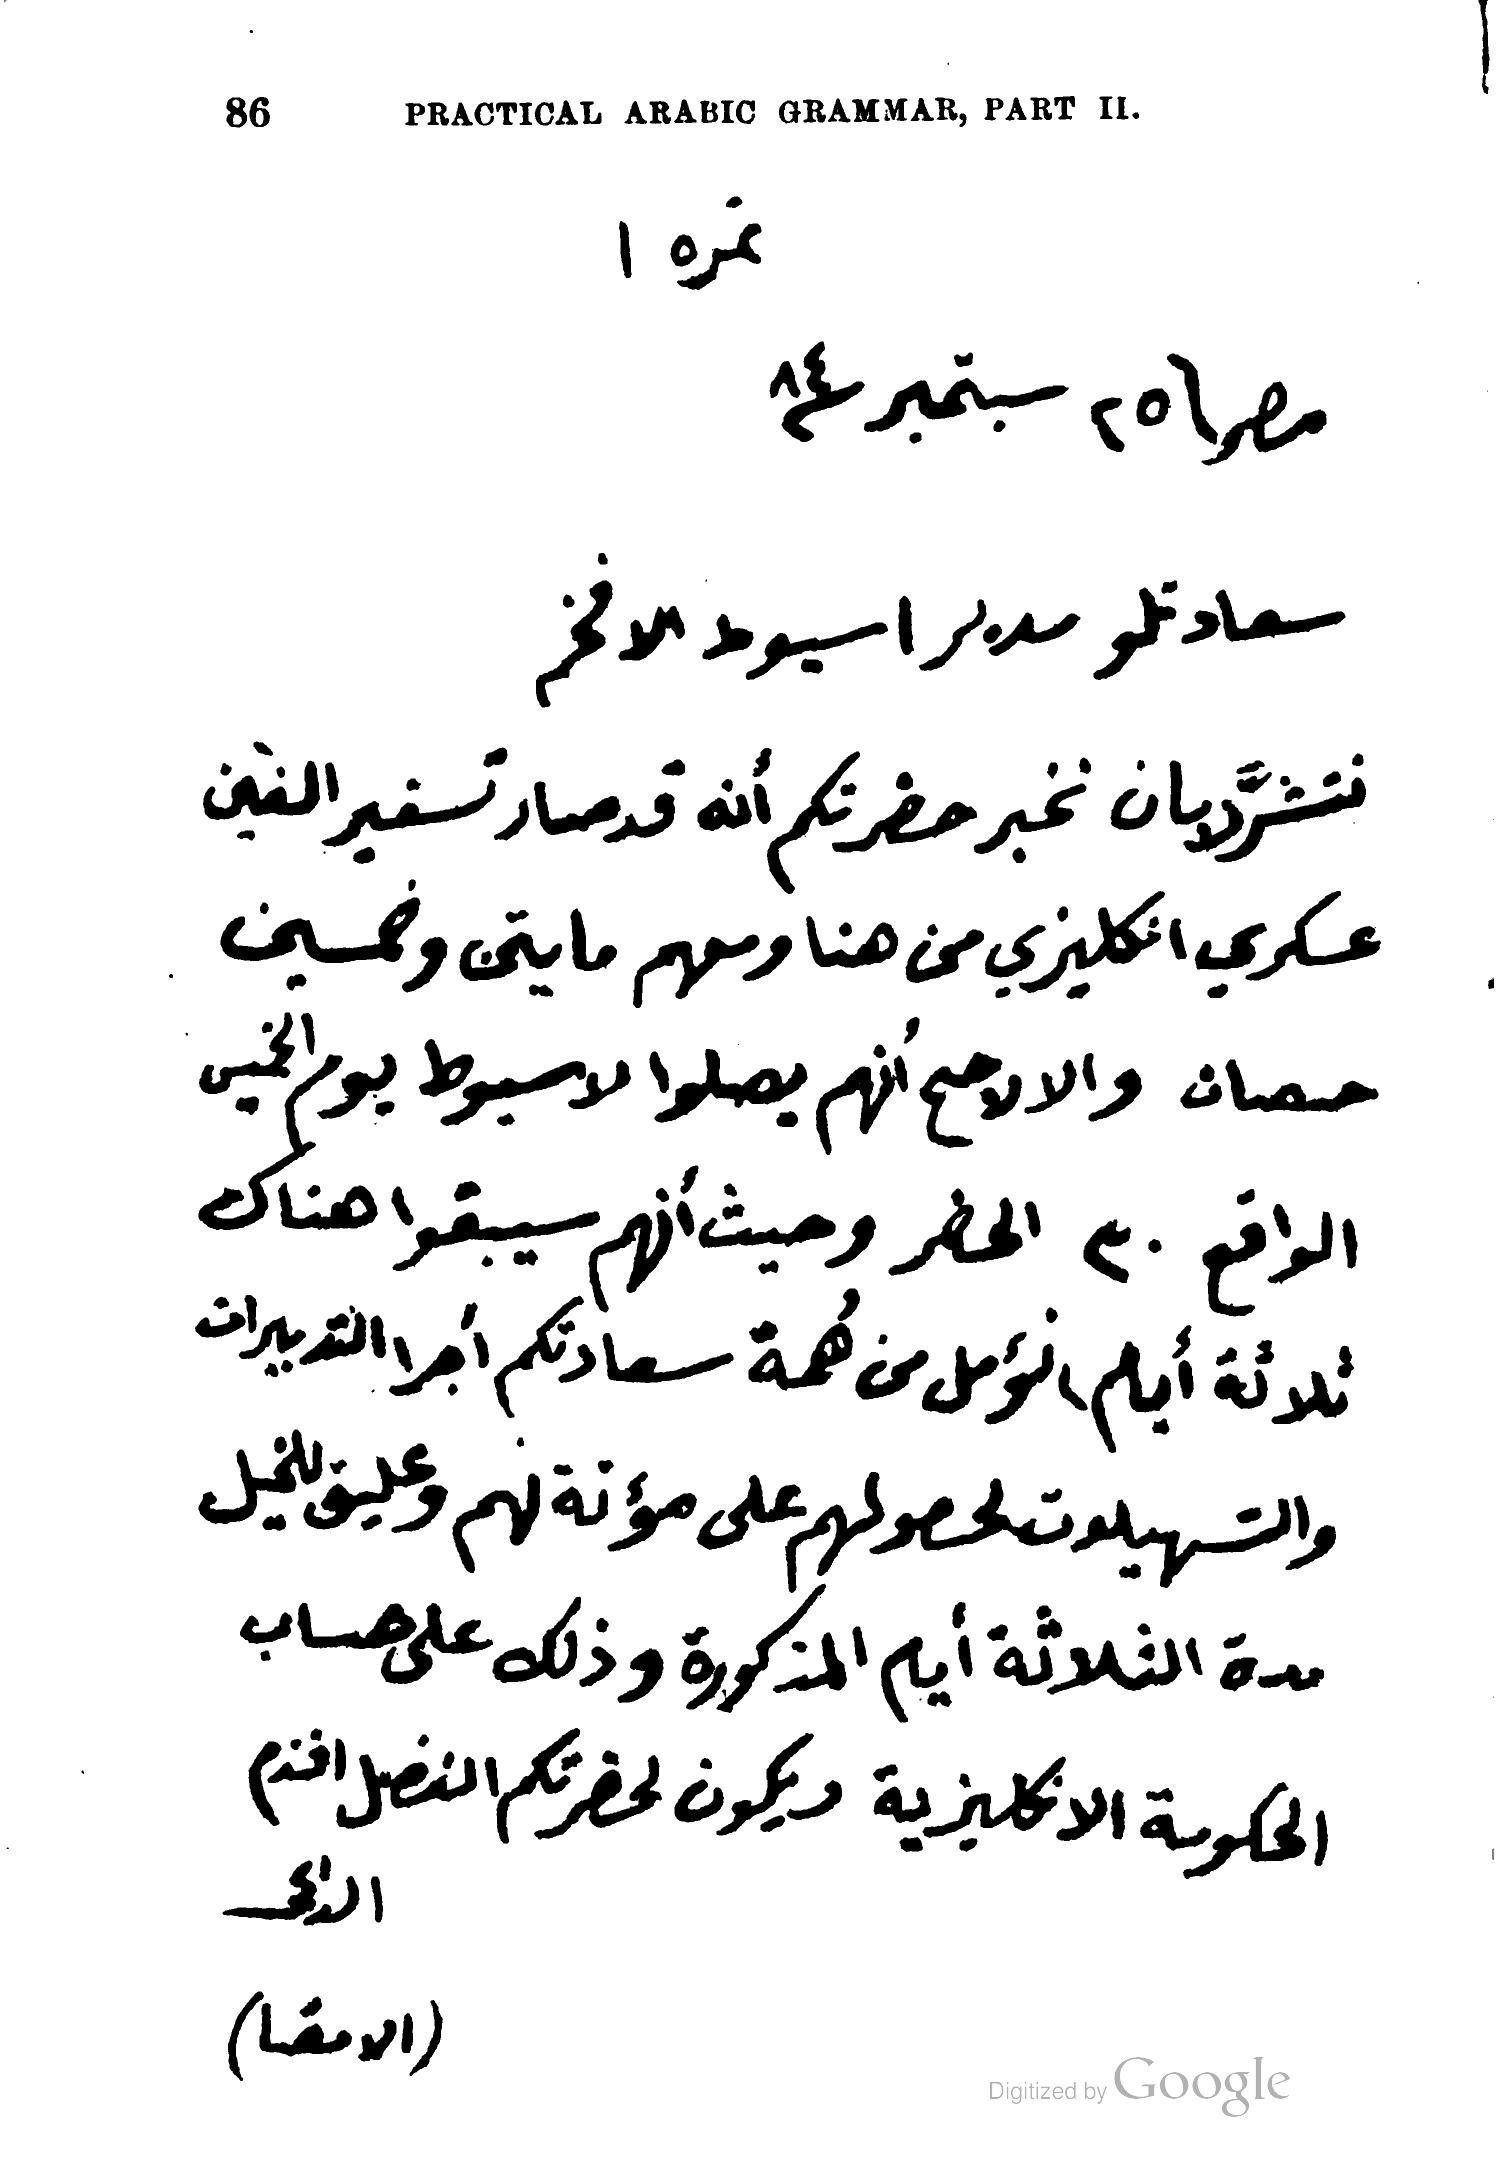 86 PRACTICAL ARABIC GRAMMAR, PART II.
نمره ١
مصر ٢٥ سبتمبر سنة ٨٤
سعادتلو مدير اسيوط الافخم
نتشرَّف بان نخبر حضرتكم أنه قد صار تسفير الفين
عسكري انكليزي من هنا ومعهم مايتين وخمسين
حصان والارجح أنهم يصلوا لاسيوط يوم الخميس
الواقع ٣٠ الحضر وحيث أنهم سيبقوا هناك
ثلاثة أيام نؤمل من هُمة سعادتكم أجرا التدبيرات
والتسهيلات لحصولهم على مؤنة لهم وعليق للخيل
مدة الثلاثة أيام المذكورة وذلك على حساب
الحكومة الانكليزية ويكون لحضرتكم الفضل افندم
الداعي
(الامضا)
Digitized by Google